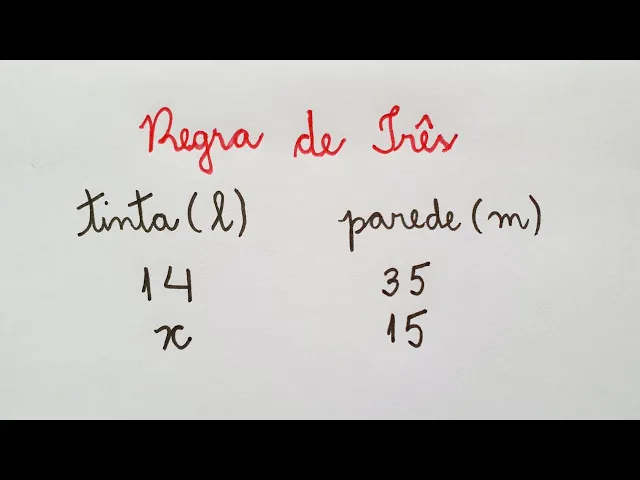 Regra de Três
tinta (l) parede (m)
14 35
x 15